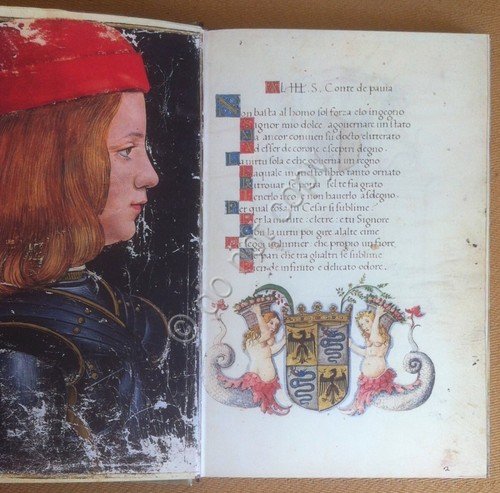 AL III. S. Conte de pauia
Non basta al homo sol forza elo ingegno
Signor mio dolce a gouernare un stato
Ma ancor conuien sia docto e litterato
Ad esser de corone e sceptri degno.
La uirtu sola e che gouerna un regno
quale in questo libro tanto ornato
fel te fia grato
Tenerlo non hauerlo a sdegno
Per qual cosa fu Cesar si sublime.
Per la mente. e letre. o tu Signore
Con la uirtu poi gire al alte cime
che propio un fiore
che tra gli altri se sublime
infinito e delicato odore.